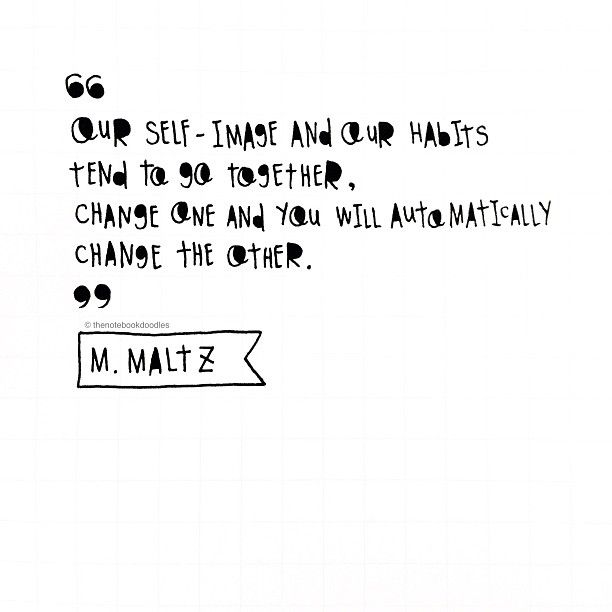 “
OUR SELF-IMAGE AND OUR HABITS
TEND TO GO TOGETHER,
CHANGE ONE AND YOU WILL AUTOMATICALLY
CHANGE THE OTHER.
”
© thenotebookdoodles
M. MALTZ